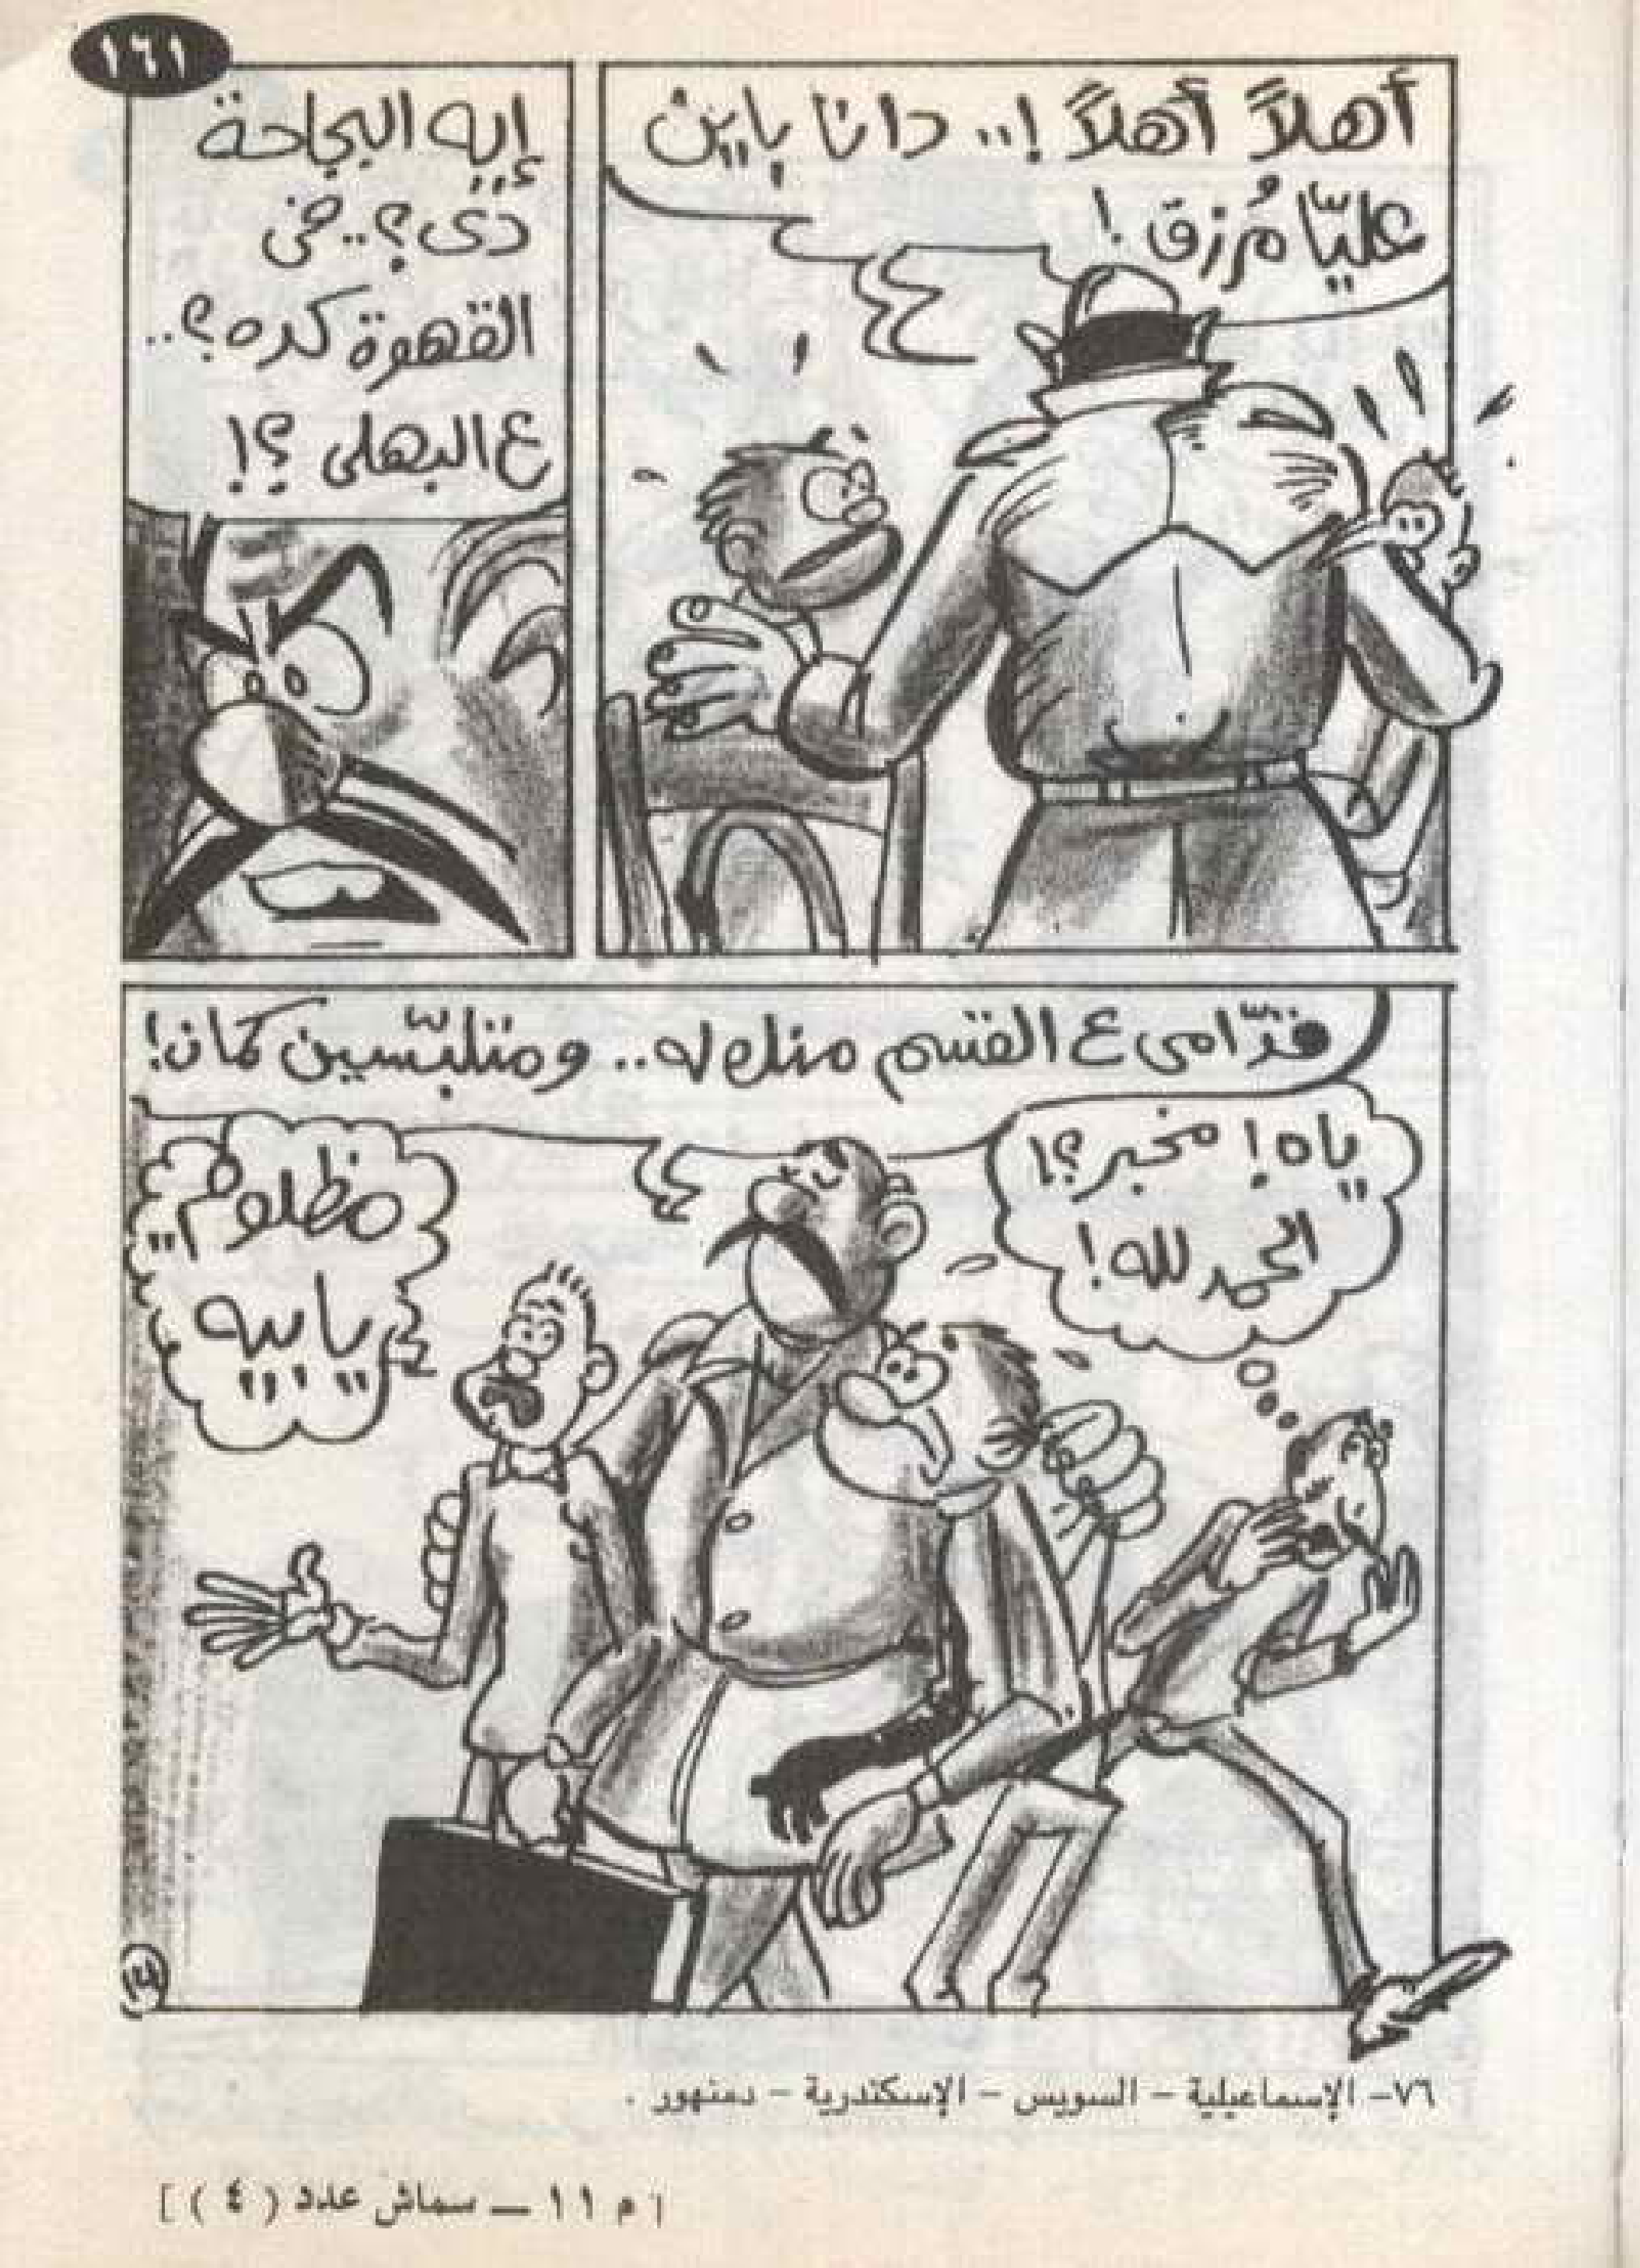 ١٦١
أهلاً أهلاً !.. دانا باين
عليّا مُرزق !
إيه البجاحة
دى ؟.. فى
القهوة كده ؟..
ع البهلى ؟!
قدّامى ع القسم منك له.. ومتلبّسين كمان!
ياه ! مخبر ؟!
الحمد لله !
مظلوم..
يا بيه
١٤
٧٦- الإسماعيلية - السويس - الإسكندرية - دمنهور .
[ م ١١ ــ سماش عدد ( ٤ ) ]